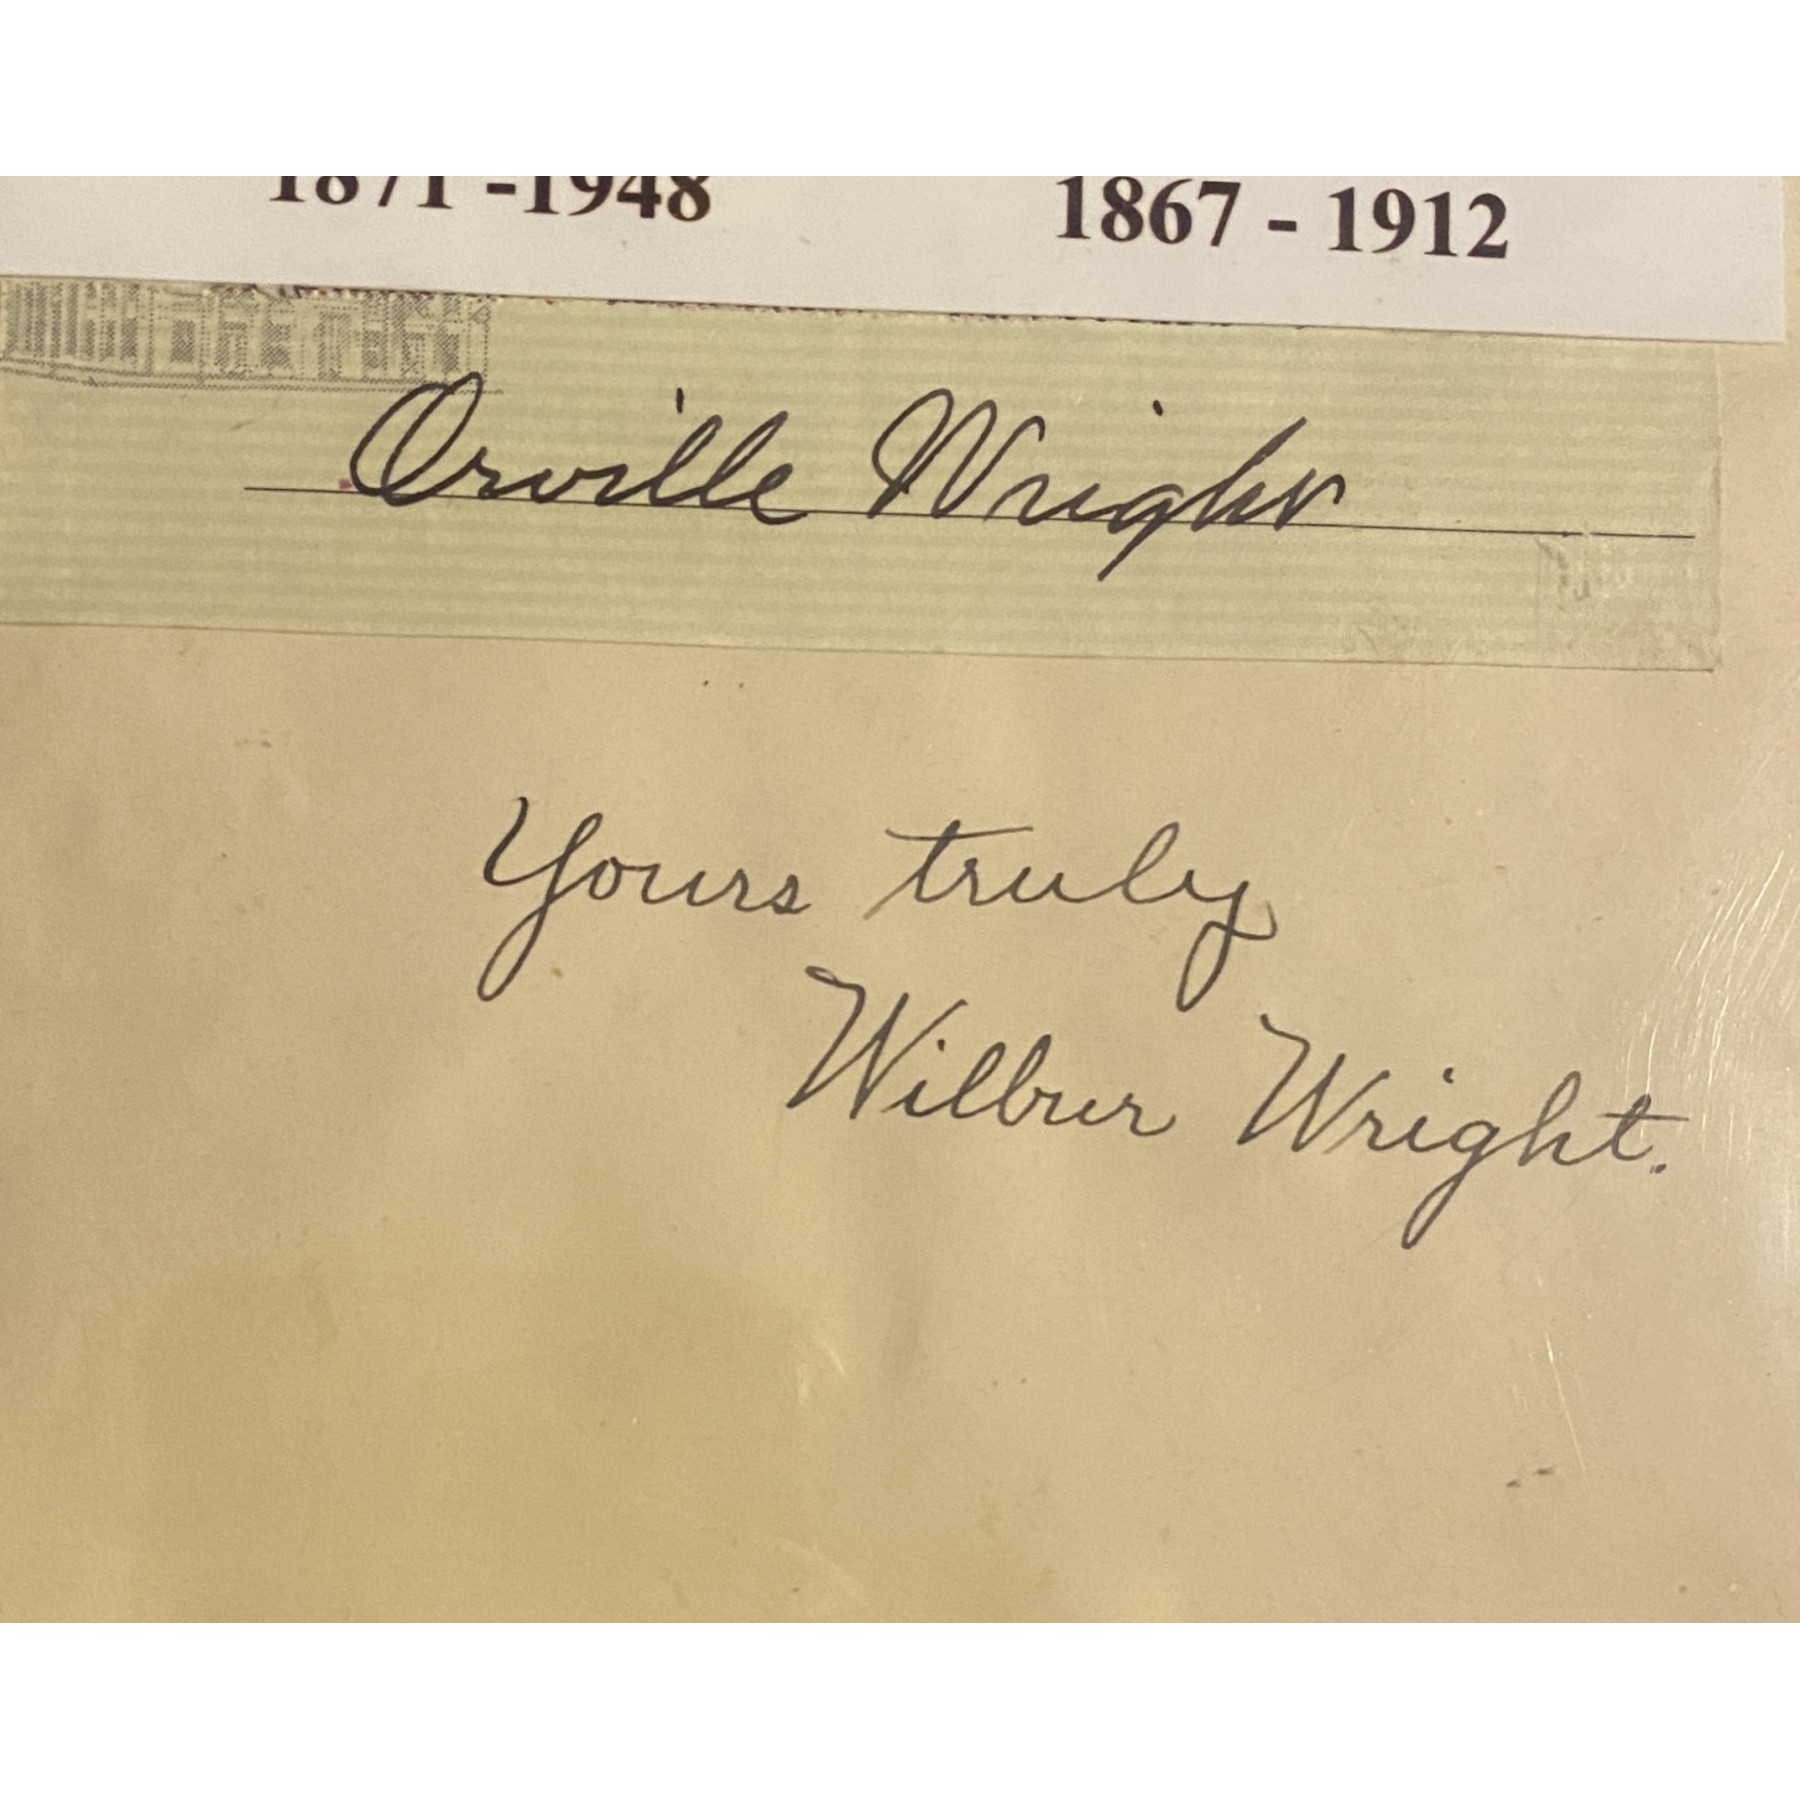 1871 -1948 1867 - 1912
Orville Wright
Yours truly
Wilbur Wright.